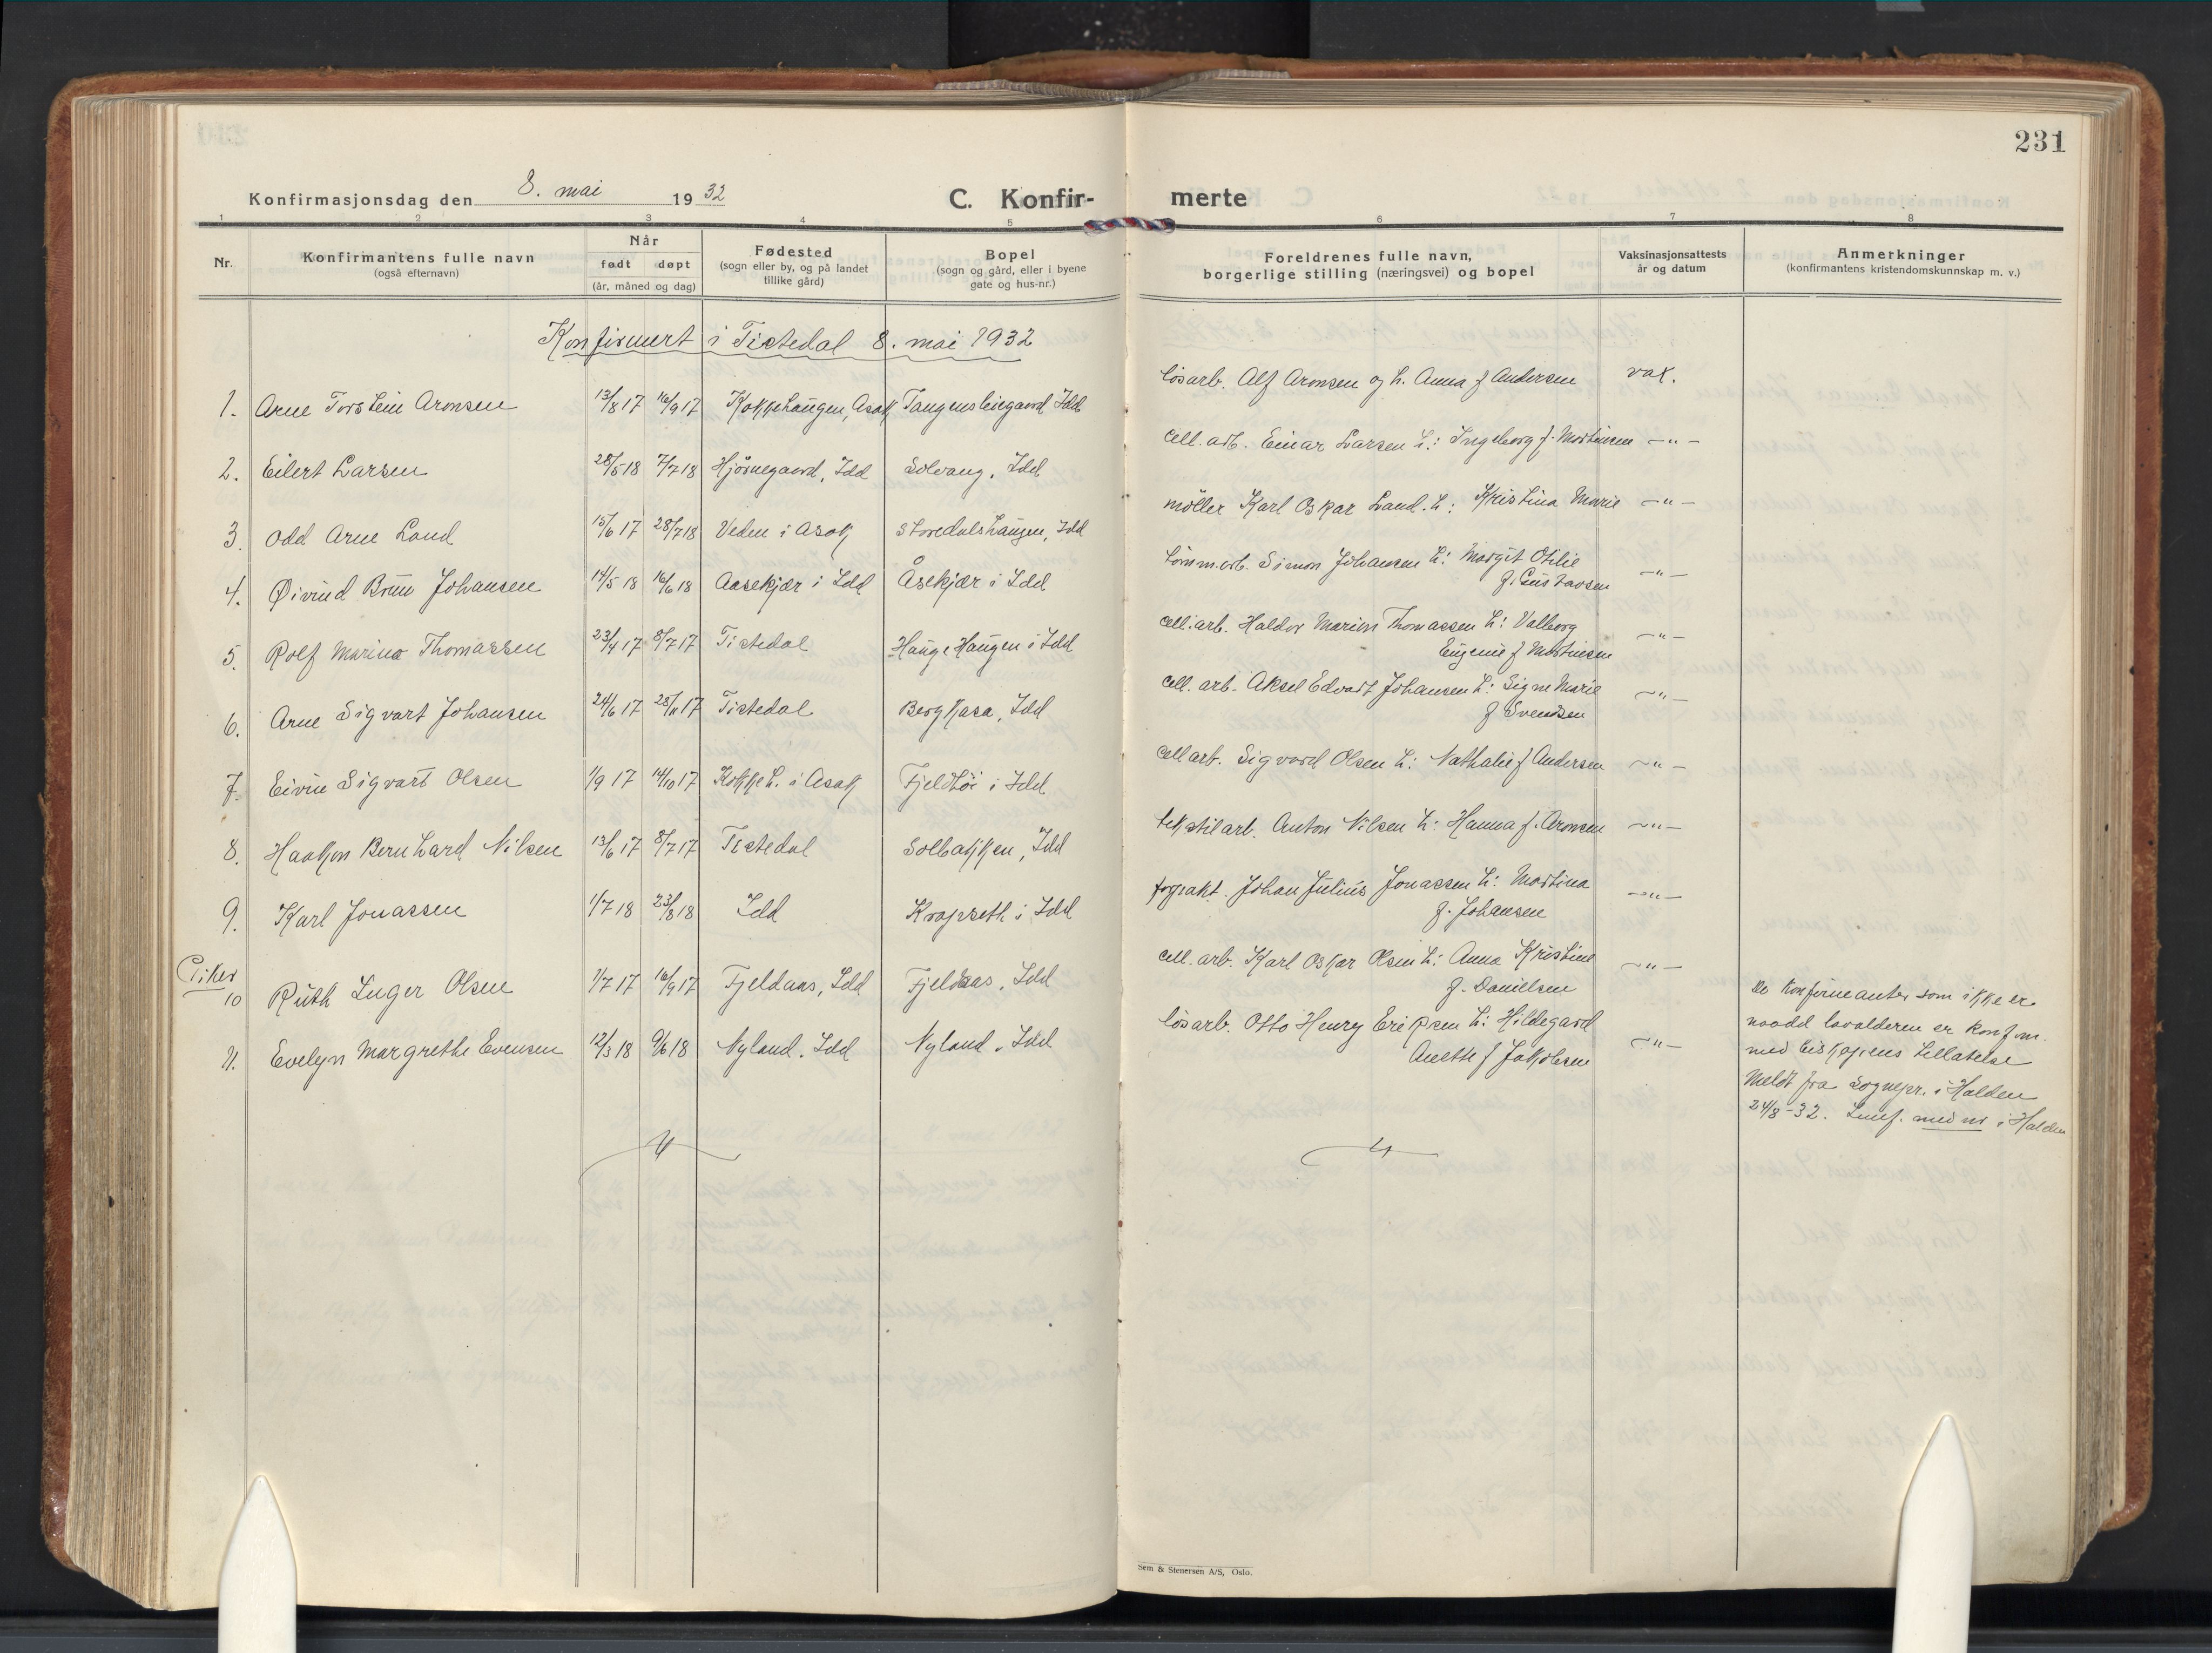 231
Konfirmasjonsdag den 8. mai 1932
C. Konfir-merte
1 2 3 4 5 6 7 8
Nr.
Konfirmantens fulle navn
(også efternavn)
Når
født døpt
(år, måned og dag)
Fødested
(sogn eller by, og på landet
tillike gård)
Bopel
(sogn og gård, eller i byene
gate og hus-nr.)
Foreldrenes fulle navn,
borgerlige stilling (næringsvei) og bopel
Vaksinasjonsattests
år og datum
Anmerkninger
(konfirmantens kristendomskunnskap m. v.)
Konfirmert i Tistedal 8. mai 1932
1. Arne Torstein Aronsen 13/8 17 16/9 17 Kokkehaugen, Asak Tangensleiegaard Idd løsarb. Alf Aronsen og h. Anna f Andersen vax.
2. Eilert Larsen 28/5 18 7/7 18 Hjørnegaard, Idd Solvang, Idd cell. arb. Einar Larsen h: Ingeborg f. Mortinsen -"-
3. Odd Arne Lund 15/6 17 28/7 18 Veden i Asak Storedalshaugen, Idd møller Karl Oskar Lund. h: Kristina Marie -"-
4. Øivind Brun Johansen 14/5 18 16/6 18 Aasekjær i Idd Åsekjær i Idd tømm.arb. Simon Johansen h: Margit Otilie
f. Gustavsen -"-
5. Rolf Marino Thomassen 23/4 17 8/7 17 Tistedal Hauge Haugen i Idd cell. arb. Haldor Marion Thomassen h: Valborg
Eugenie f Mortinsen -"-
6. Arne Sigvart Johansen 24/6 17 25/11 17 Tistedal Berg kasa, Idd cell. arb. Aksel Edvart Johansen h: Signe Marie
f Svendsen -"-
7. Eivin Sigvart Olsen 1/9 17 14/10 17 Kokkeh. i Asak Fjeldhøi i Idd cell arb. Sigvard Olsen h: Nathalie f Andersen -"-
8. Haakon Bernhard Nilsen 13/6 17 8/7 17 Tistedal Solbakken, Idd tekstilarb. Anton Nilsen h: Hanna f. Aronsen -"-
9. Karl Jonassen 1/7 18 23/8 18 Idd Krapseth i Idd forpakt. Johan Julius Jonassen h: Martina
f. Johansen -"-
Piker
10 Ruth Inger Olsen 1/7 17 16/9 17 Fjeldaas, Idd Fjeldaas, Idd cell. arb. Karl Oskar Olsen h: Anna Kristine
f. Danielsen -"-
11. Evelyn Margrethe Evensen 12/3 18 9/6 18 Nyland, Idd Nyland, Idd løsarb. Otto Henry Eriksen h: Hildegard
Anette f Jakobsen -"-
De konfirmanter som ikke er
naadd lavalderen er konfirm.
med biskopens tillatelse
Meldt fra Sognepr. i Halden
24/8-32. Innf. med nr i Halden
Sem & Stenersen A/S, Oslo.